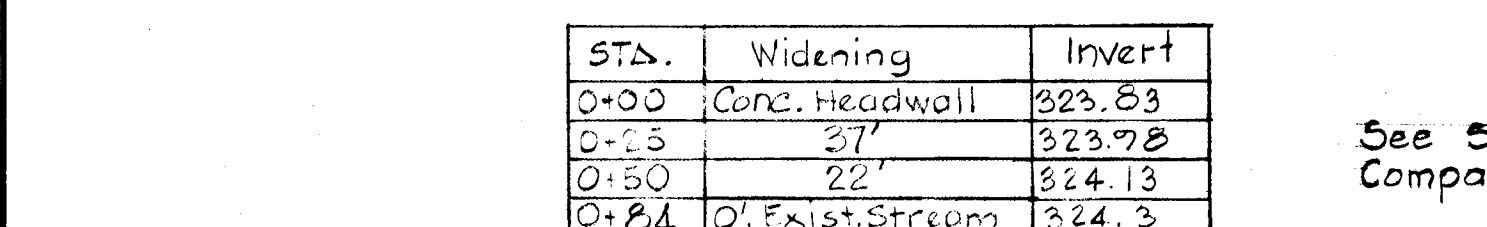 STA. Widening Invert
0+00 Conc. Headwall 323.83
0+25 37' 323.98
0+50 22' 324.13
0+84 0'. Exist. Stream 324.3
See
Compa